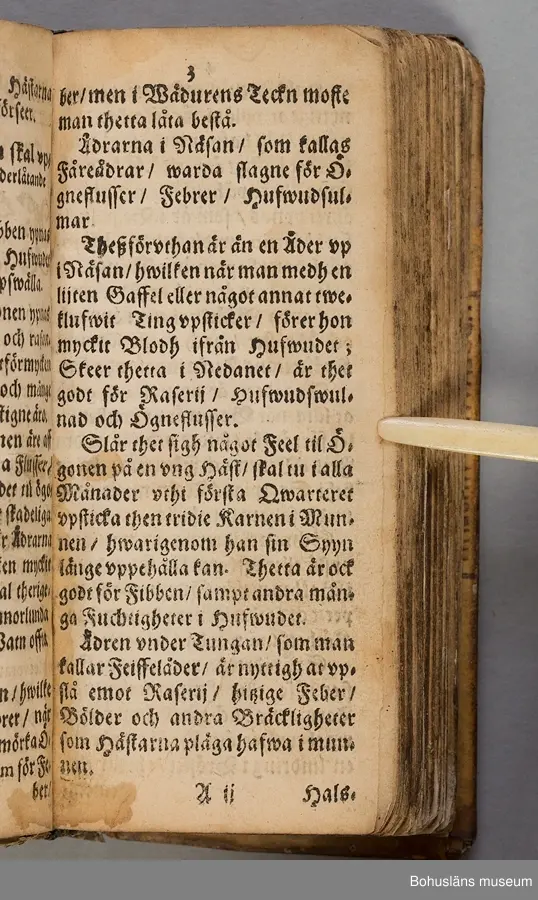 Hästarna
förseer.
skal vp-
derlåtande
bben ypnas
Hufwudet
pswälla.
onen ypnas
och rasen-
tförmycken
och många
stigne äro.
nen äre aff
a Flusser/
det til ögo-
skadeliga
r Ädrarna
en myckit
al therige-
morlunda
Vatn offta.
n/hwilke
bret / när
mörka Ö-
m för Fe-
ber/
3
ber/men i Wädurens Teckn moste
man thetta låta bestå.
Ädrarna i Näsan / som kallas
Färeädrar / warda slagne för Ö-
gneflusser / Febrer / Hufwudsul-
mar.
Theßförvthan är än en Äder vp
i Näsan / hwilken när man medh en
lijten Gaffel eller något annat twe-
klufwit Ting vpsticker / förer hon
myckit Blodh ifrån Hufwudet;
Skeer thetta i Nedanet / är thet
godt för Raserij / Hufwudswul-
nad och Ögneflusser.
Slår thet sigh något Feel til Ö-
gonen på en vng Häst / skal tu i alla
Månader vthi första Qwarteret
vpsticka then tridie Karnen i Mun-
nen / hwarigenom han sin Syyn
länge vppehålla kan. Thetta är ock
godt för Fibben / sampt andra mån-
ga Fuchtigheter i Hufwudet.
Ädren vnder Tungan / som man
kallar Feiffeläder / är nyttigh at vp-
slå emot Raserij / hitzige Feber /
Bölder och andra Bräckligheter
som Hästarna pläga hafwa i mun-
nen.
A ij Hals-
Bohusläns museum